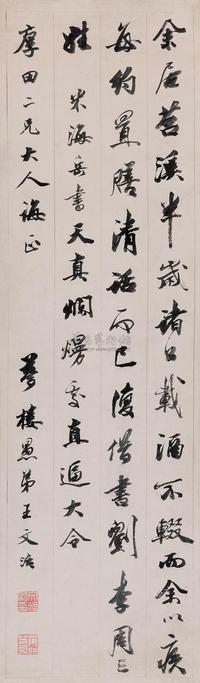 余居苕溪半歲諸公載酒不輟而余以疾
每約置膳清話而已復借書劉李周三
姓 米海岳書天真爛熳處直逼大令
厚田二兄大人誨正 夢樓愚弟王文治